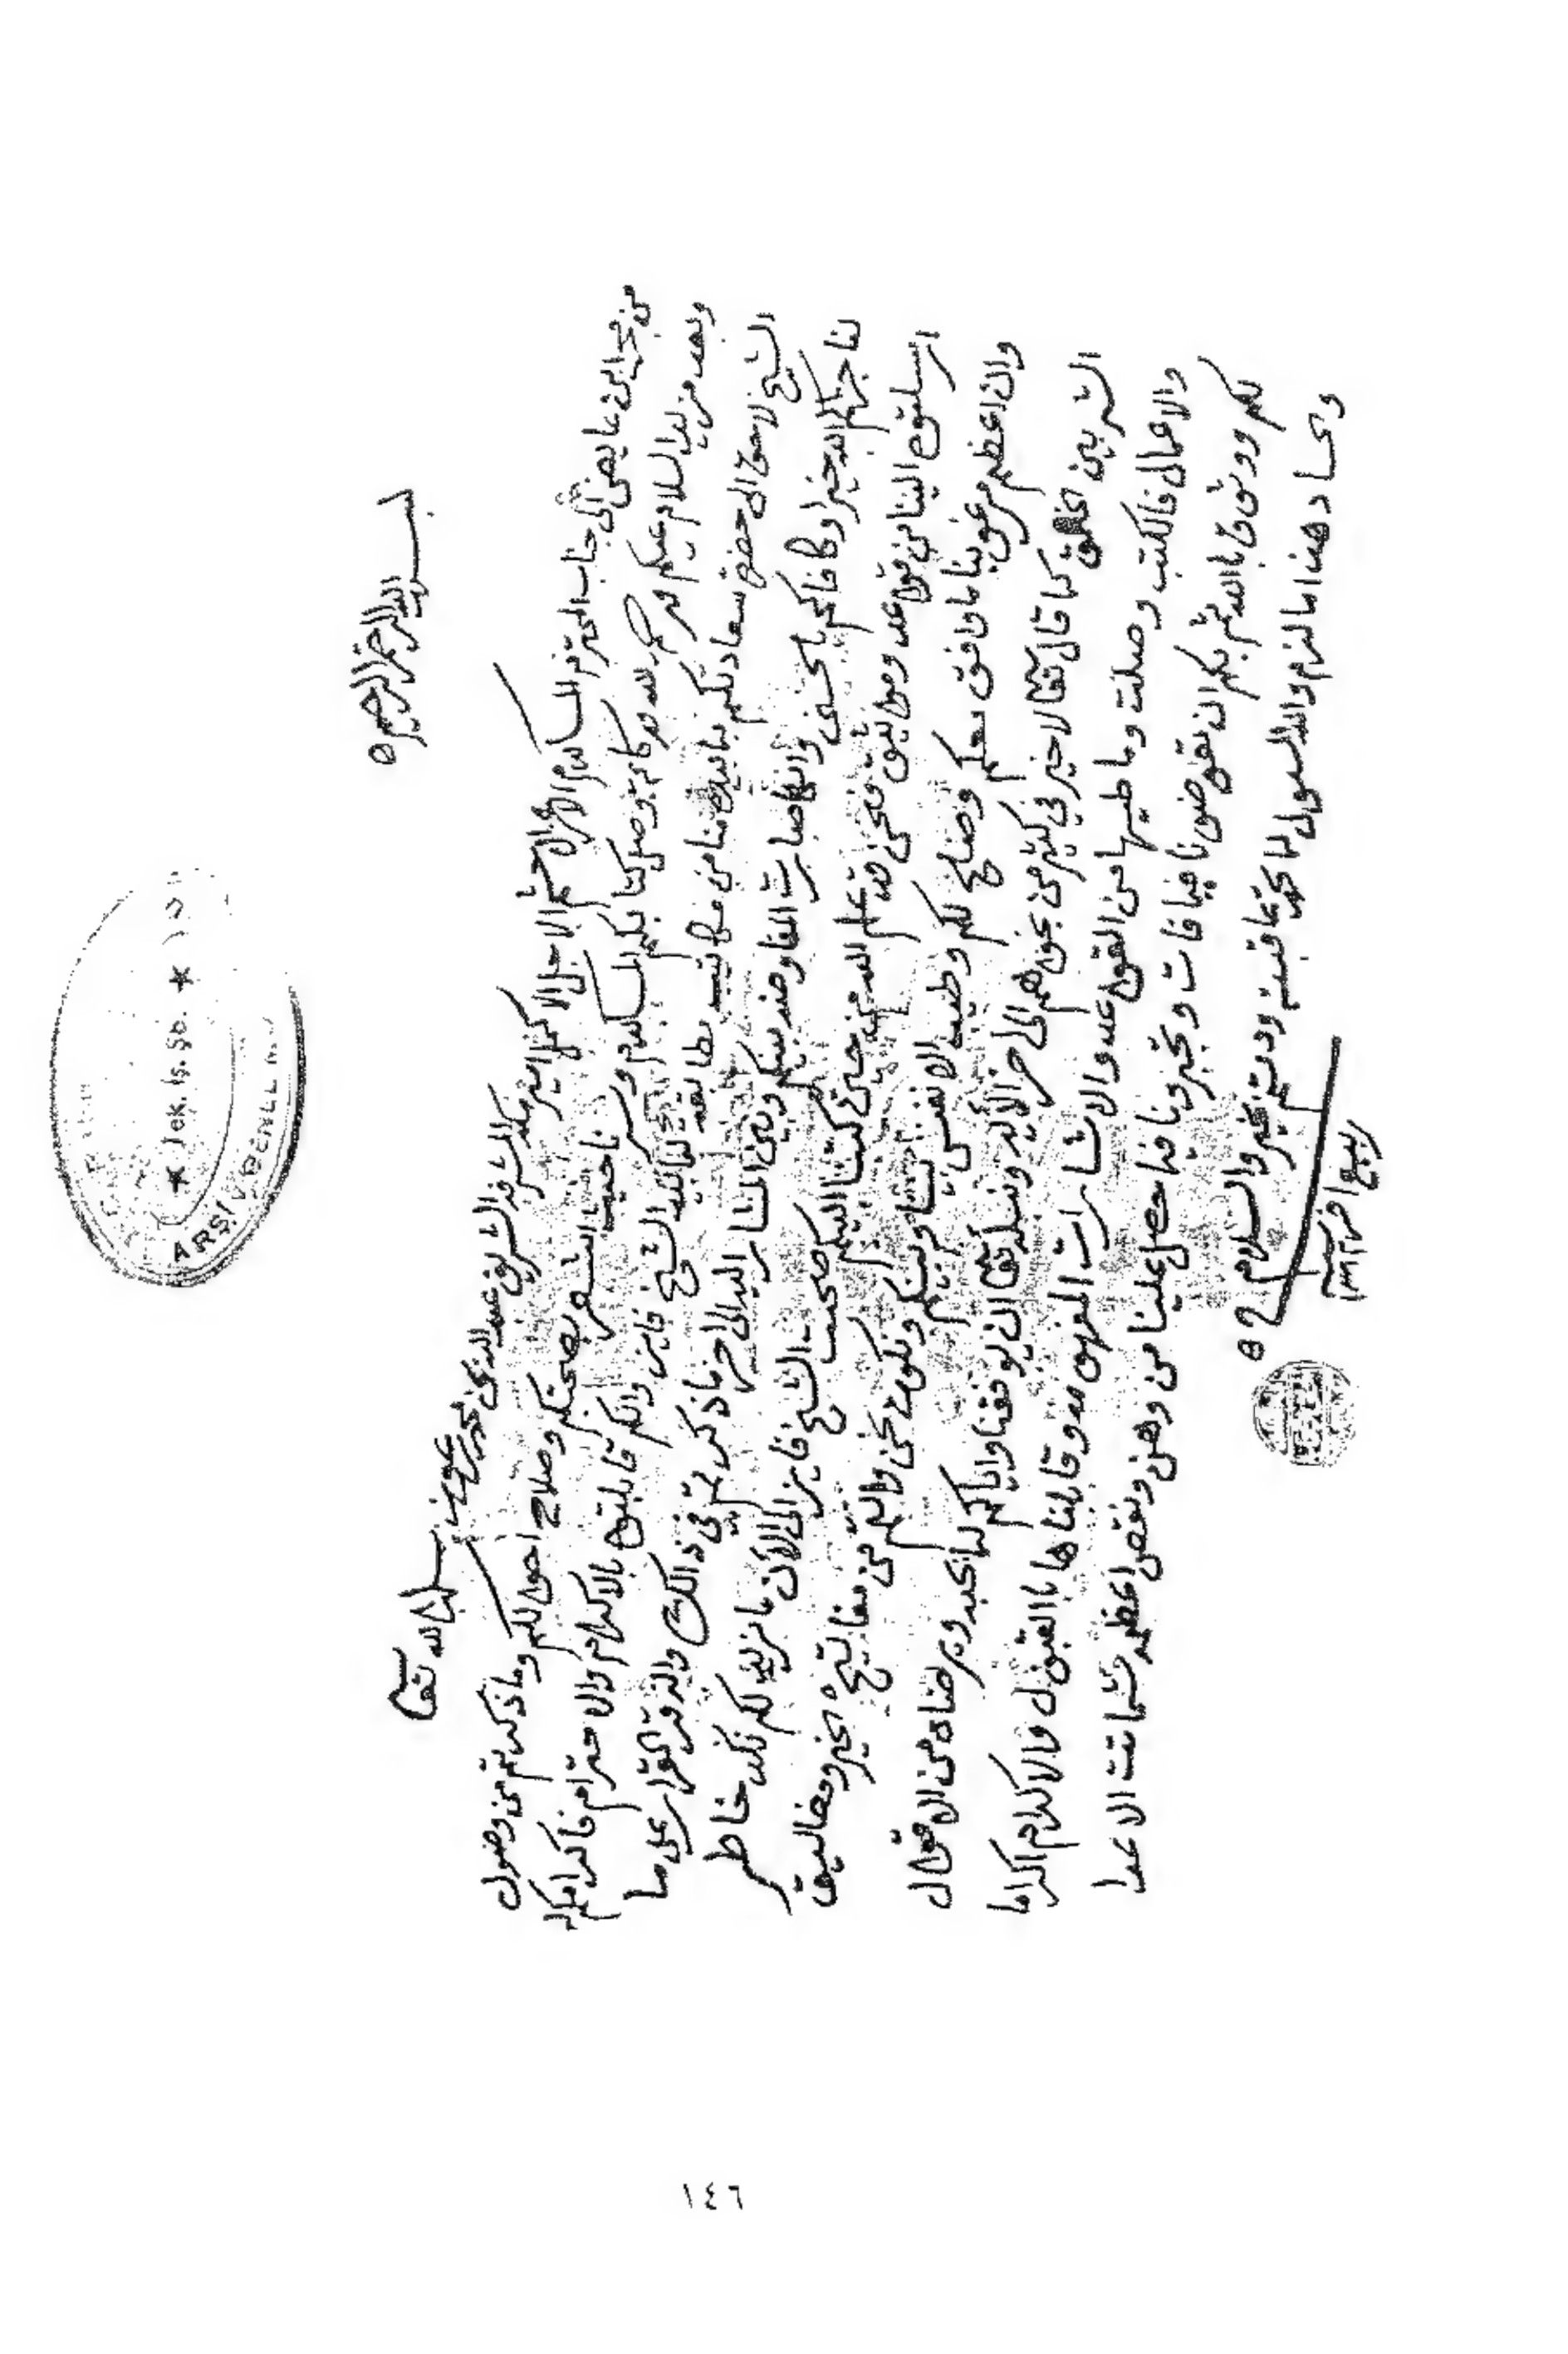 بسم الله الرحمن الرحيم
من محمد ابن عايض الى جناب المحترم المكرم الاعز الاحشم الاجل الاكمل امير مكة المشرفه الشريف عبد الله بن محمد بن عون سلمه الله تعالى
وبعد مزيد السلام عليكم ورحمة الله وبركاته وصل كتابكم المكرم وسرنا حيث اشعر بصحتكم وصلاح احوالكم وما ذكرتم من وصول
الشيخ لاحق الى حضرة سعادتكم بما بيده منا من مكاتيب بطانة الشيخ فايز وانكم قابلتوه بالاكرام والاحترام فاكرامكم له
لنا جزاكم الله خيرا وكافاكم بالحسنى وانها صارت المفاوضه بينكم وبين المشار اليه الى اخر ما ذكرتم في ذالك والذ قر القرار على ما
ارسلتوه الينا من قواعد ومواثيق فنحن من حين كتبنا اليكم صحبت الشيخ فايز الى الان ما نريد لكم نكد خاطر
وان اعظم مرغوبنا ما وافق معكم وصلح لكم وطيب الانفس بيننا وبينكم ونكون نحن وانتم من مفاتيح الخير ومغاليق
الشر بين الخلق كما قال تعالى لا خير في كثير من نجواهم الى اخر الآيه ونسئله تعالى ان يوفقنا واياكم لما يحبه ويرضاه من الاقوال
والاعمال فالكتب وصلت وما طيها من القواعد والاشارات المفهومه وقابلناها بالقبول والاكرام اكراما
لكم ووثوق بالله ثم بكم ان تعوضونا فيما فات وتجبرونا فيما حصل علينا من وهن ونقص اعظمه شماتت الاعدا
هذا ما لزم والله المسول لما تحمد عاقبته ودمتم بخير والسلام
ربيع اخر سنه
ARŞİV
١٤٦